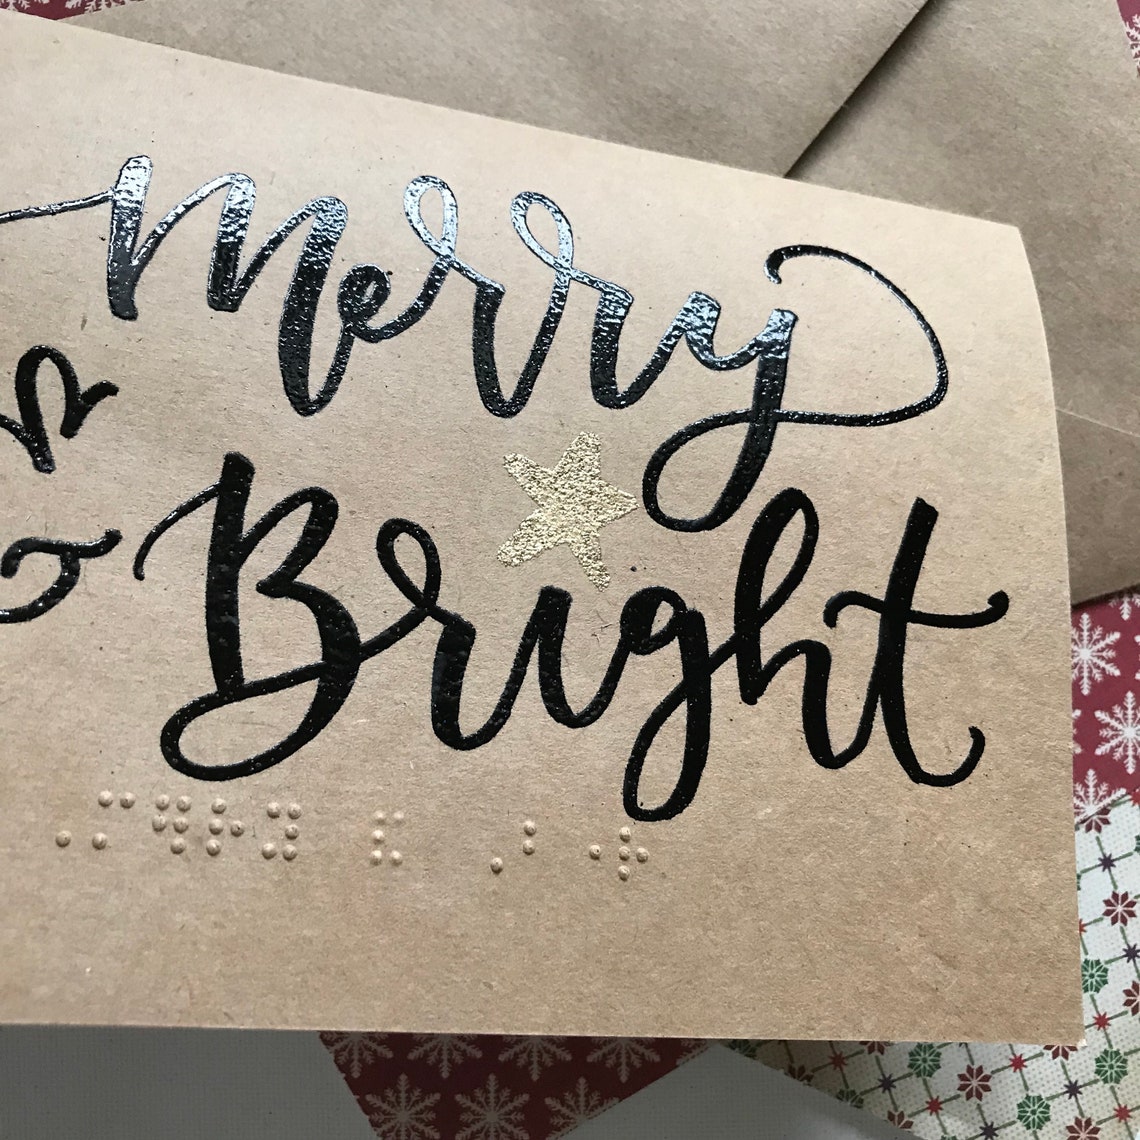 Merry
Bright
⠠⠍⠻⠗⠽ ⠯